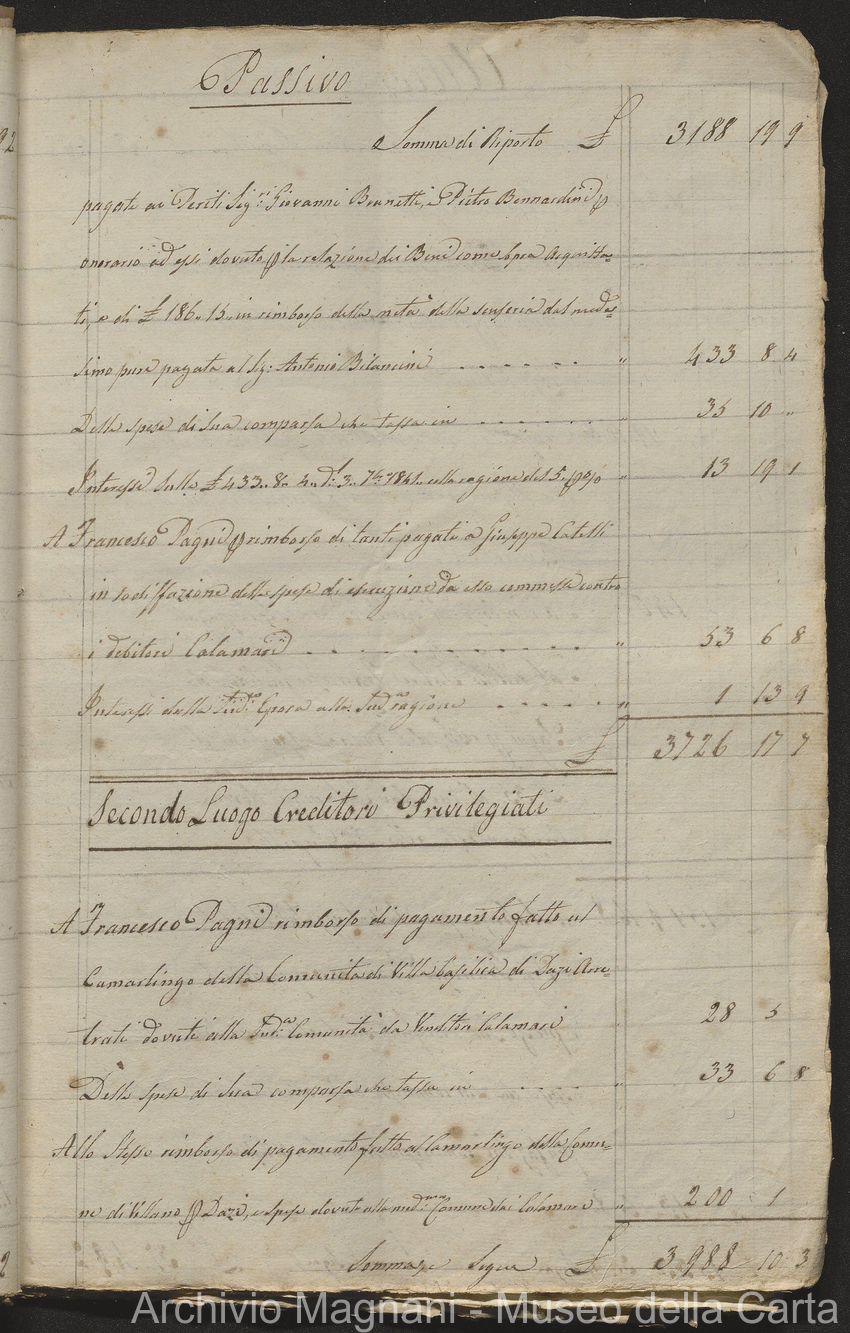 Passivo
Somma di Riporto £ 3188 19 9
pagate ai Periti Sig:ri Giovanni Brunetti, e Pietro Bennardini p
onorario ad essi dovuto p la relazione dei Beni come Spra Acquista=
ti, e di £ 186,, 15,, in rimborso della metà della senseria dal mede=
simo pure pagata al Sig: Antonio Bilancini . . . . . . " 433 8 4
Delle spese di sua comparsa che tassa in . . . . . . " 35 10 "
Interessi sulle £ 433,, 8,, 4,, d: 3,, 7bre 1841,, alla ragione del 5,, p 0/0 " 13 19 1
A Francesco Pagni p rimborso di tanti pagati a Giuseppe Catelli
in sodisfazione delle spese di esecuzione da esso commesse contro
i debitori Calamari . . . . . . . . . . . . " 53 6 8
Interessi dalla Sud:a Epoca alla Sud:a ragione . . . . . . " 1 13 9
£ 3726 17 7
Secondo Luogo Creditori Privilegiati
A Francesco Pagni rimborso di pagamento fatto al
Camarlingo della Comunità di Villa Basilica di Dazi Arre=
trati dovuti alla Sud:a Comunità da Venditori Calamari " 28 5
Delle spese di sua comparsa che tassa in . . . . " 33 6 8
Allo Stesso rimborso di pagamento fatto al Camarlingo della Comu=
ne di Vellano p Dazi, e spese dovute alla med:ma Comune dai Calamari " 200 1
Somma, e Segue £ 3988 10 3
92
2
Archivio Magnani - Museo della Carta